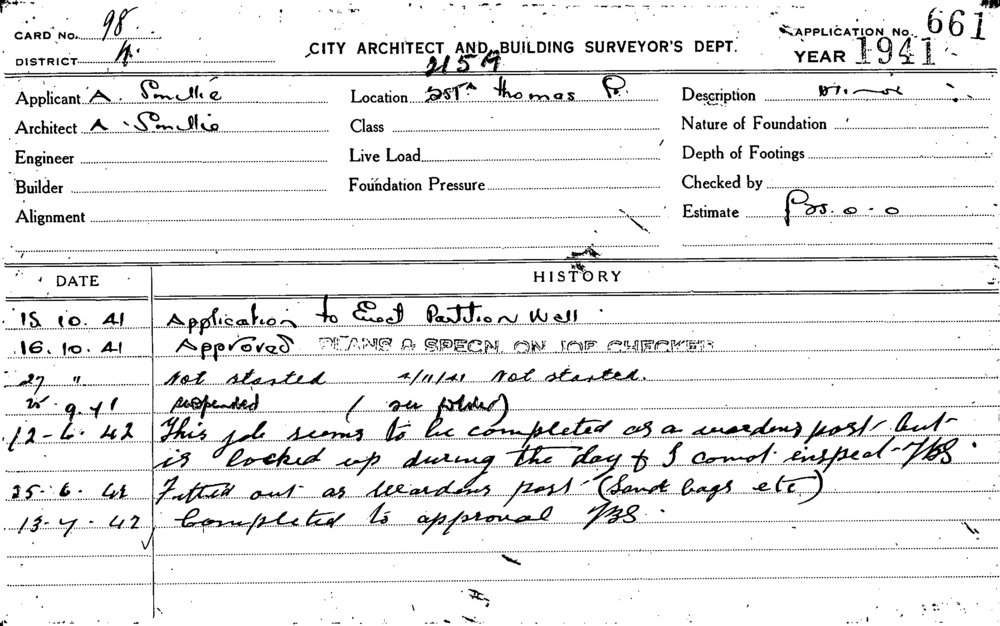 CARD No. 98
DISTRICT
CITY ARCHITECT AND BUILDING SURVEYOR'S DEPT.
APPLICATION No. 661
YEAR 1941
Applicant A. Smillie
Location St. Thomas
Description
Architect A. Smillie
Class
Nature of Foundation
Engineer
Live Load
Depth of Footings
Builder
Foundation Pressure
Checked by
Alignment
Estimate
DATE HISTORY
15 10. 41 Application to Erect Partition Wall
16. 10. 41 Approved PLANS & SPECN. ON JOB CHECKED
27 " Not started 4/11/41 Not started.
9. 41 suspended
12-6. 42 This job seems to be completed as a wardens post but
is locked up during the day & I cannot inspect
25. 6. 42 Fitted out as Wardens post (Sand bags etc)
13-7. 42 Completed to approval